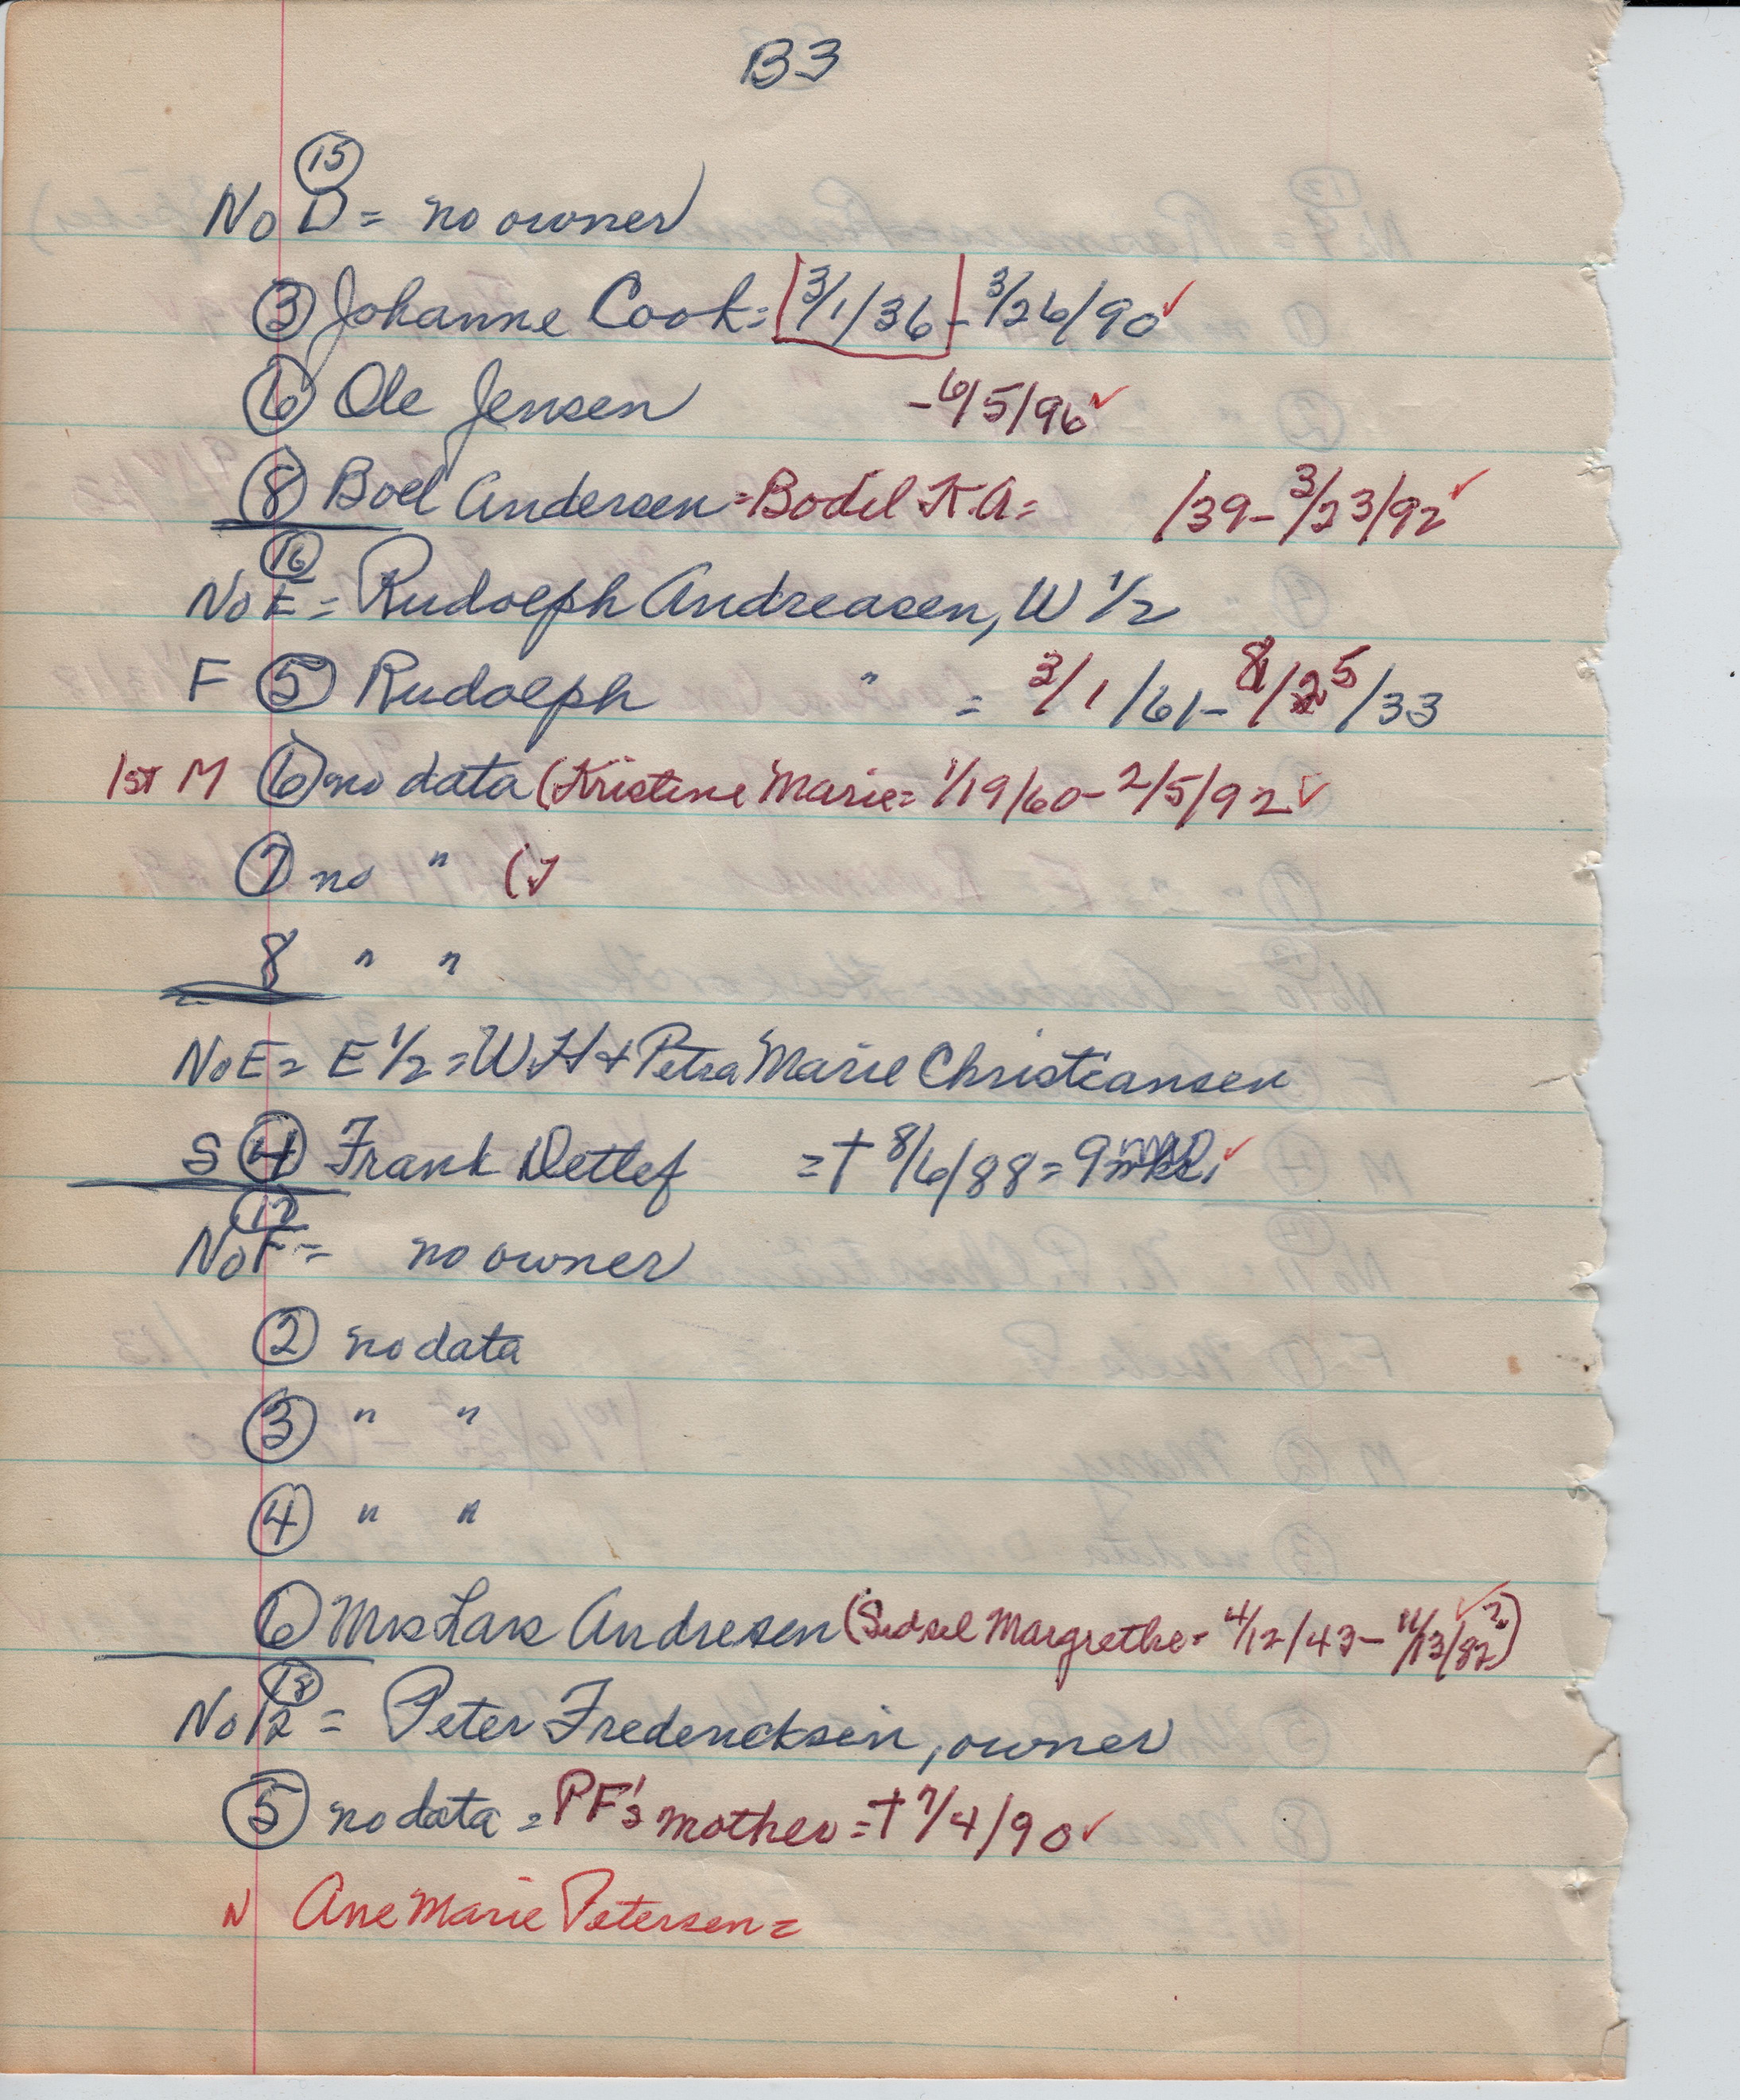 B3
15
No D = no owner
3 Johanne Cook = 3/1/36 - 3/26/90 ✓
6 Ole Jensen - 6/5/96 ✓
8 Boel Andersen = Bodil K A = /39 - 3/23/92 ✓
16
No E = Rudolph Andreasen, W 1/2
F 5 Rudolph " = 3/1/61 - 8/25/33
1st M 6 no data (Kristine Marie = 1/19/60 - 2/5/92 ✓
7 no " (
8 " "
No E = E 1/2 = W H + Petra Marie Christiansen
S 4 Frank Detlef = † 8/6/88 = 9 ✓
17
No F = no owner
2 no data
3 " "
4 " "
6 Mrs Lars Andresen (Sidsel Margrethe = 4/12/43 - 11/13/82 ✓)
18
No 12 = Peter Fredericksen, owner
5 no data = PF's mother = † 7/4/90 ✓
N Ane Marie Petersen =